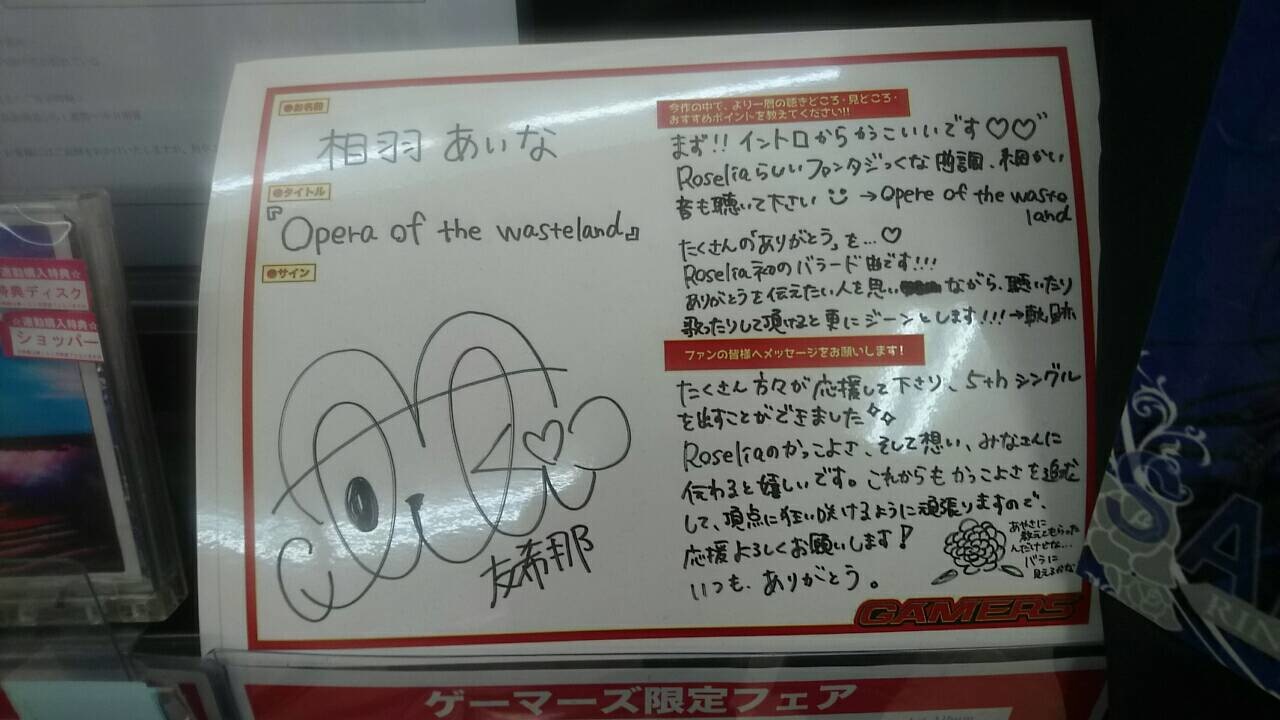 ●お名前
相羽 あいな
●タイトル
『Opera of the wasteland』
●サイン
友希那
今作の中で、より一層の聴きどころ・見どころ・
おすすめポイントを教えてください!!
まず!! イントロからかっこいいです♡♡
Roseliaらしいファンタジっくな曲調、細かい
音も聴いて下さい → Opere of the waste
land
たくさんの「ありがとう」を…♡
Roselia初のバラード曲です!!!
ありがとうを伝えたい人を思いながら、聴いたり
歌ったりして頂けると更にジーンとします!!!→軌跡
ファンの皆様へメッセージをお願いします!
たくさん方々が応援して下さり、5thシングル
を出すことができました
Roseliaのかっこよさ、そして想い、みなさんに
伝わると嬉しいです。これからもかっこよさを追求
して、頂点に狂い咲けるように頑張りますので、
応援よろしくお願いします!
いつも、ありがとう。
あやさに
教えてもらった
んだけどな…
バラに
見えるかな
GAMERS
ゲーマーズ限定フェア
連動購入特典☆
特典ディスク
☆連動購入特典☆
ショッパー
SA
RIN